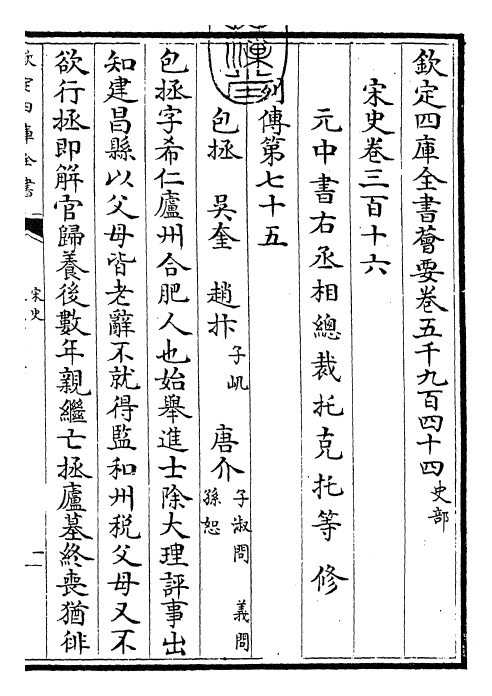 欽定四庫全書薈要卷五千九百四十四 史部
宋史卷三百十六
元中書右丞相總裁托克托等修
列傳第七十五
包拯 吳奎 趙抃 子㞦 唐介 子淑問 義問 孫恕
包拯字希仁廬州合肥人也始舉進士除大理評事出
知建昌縣以父母皆老辭不就得監和州税父母又不
欲行拯即解官歸養後數年親繼亡拯廬墓終喪猶徘
欽定四庫全書
宋史